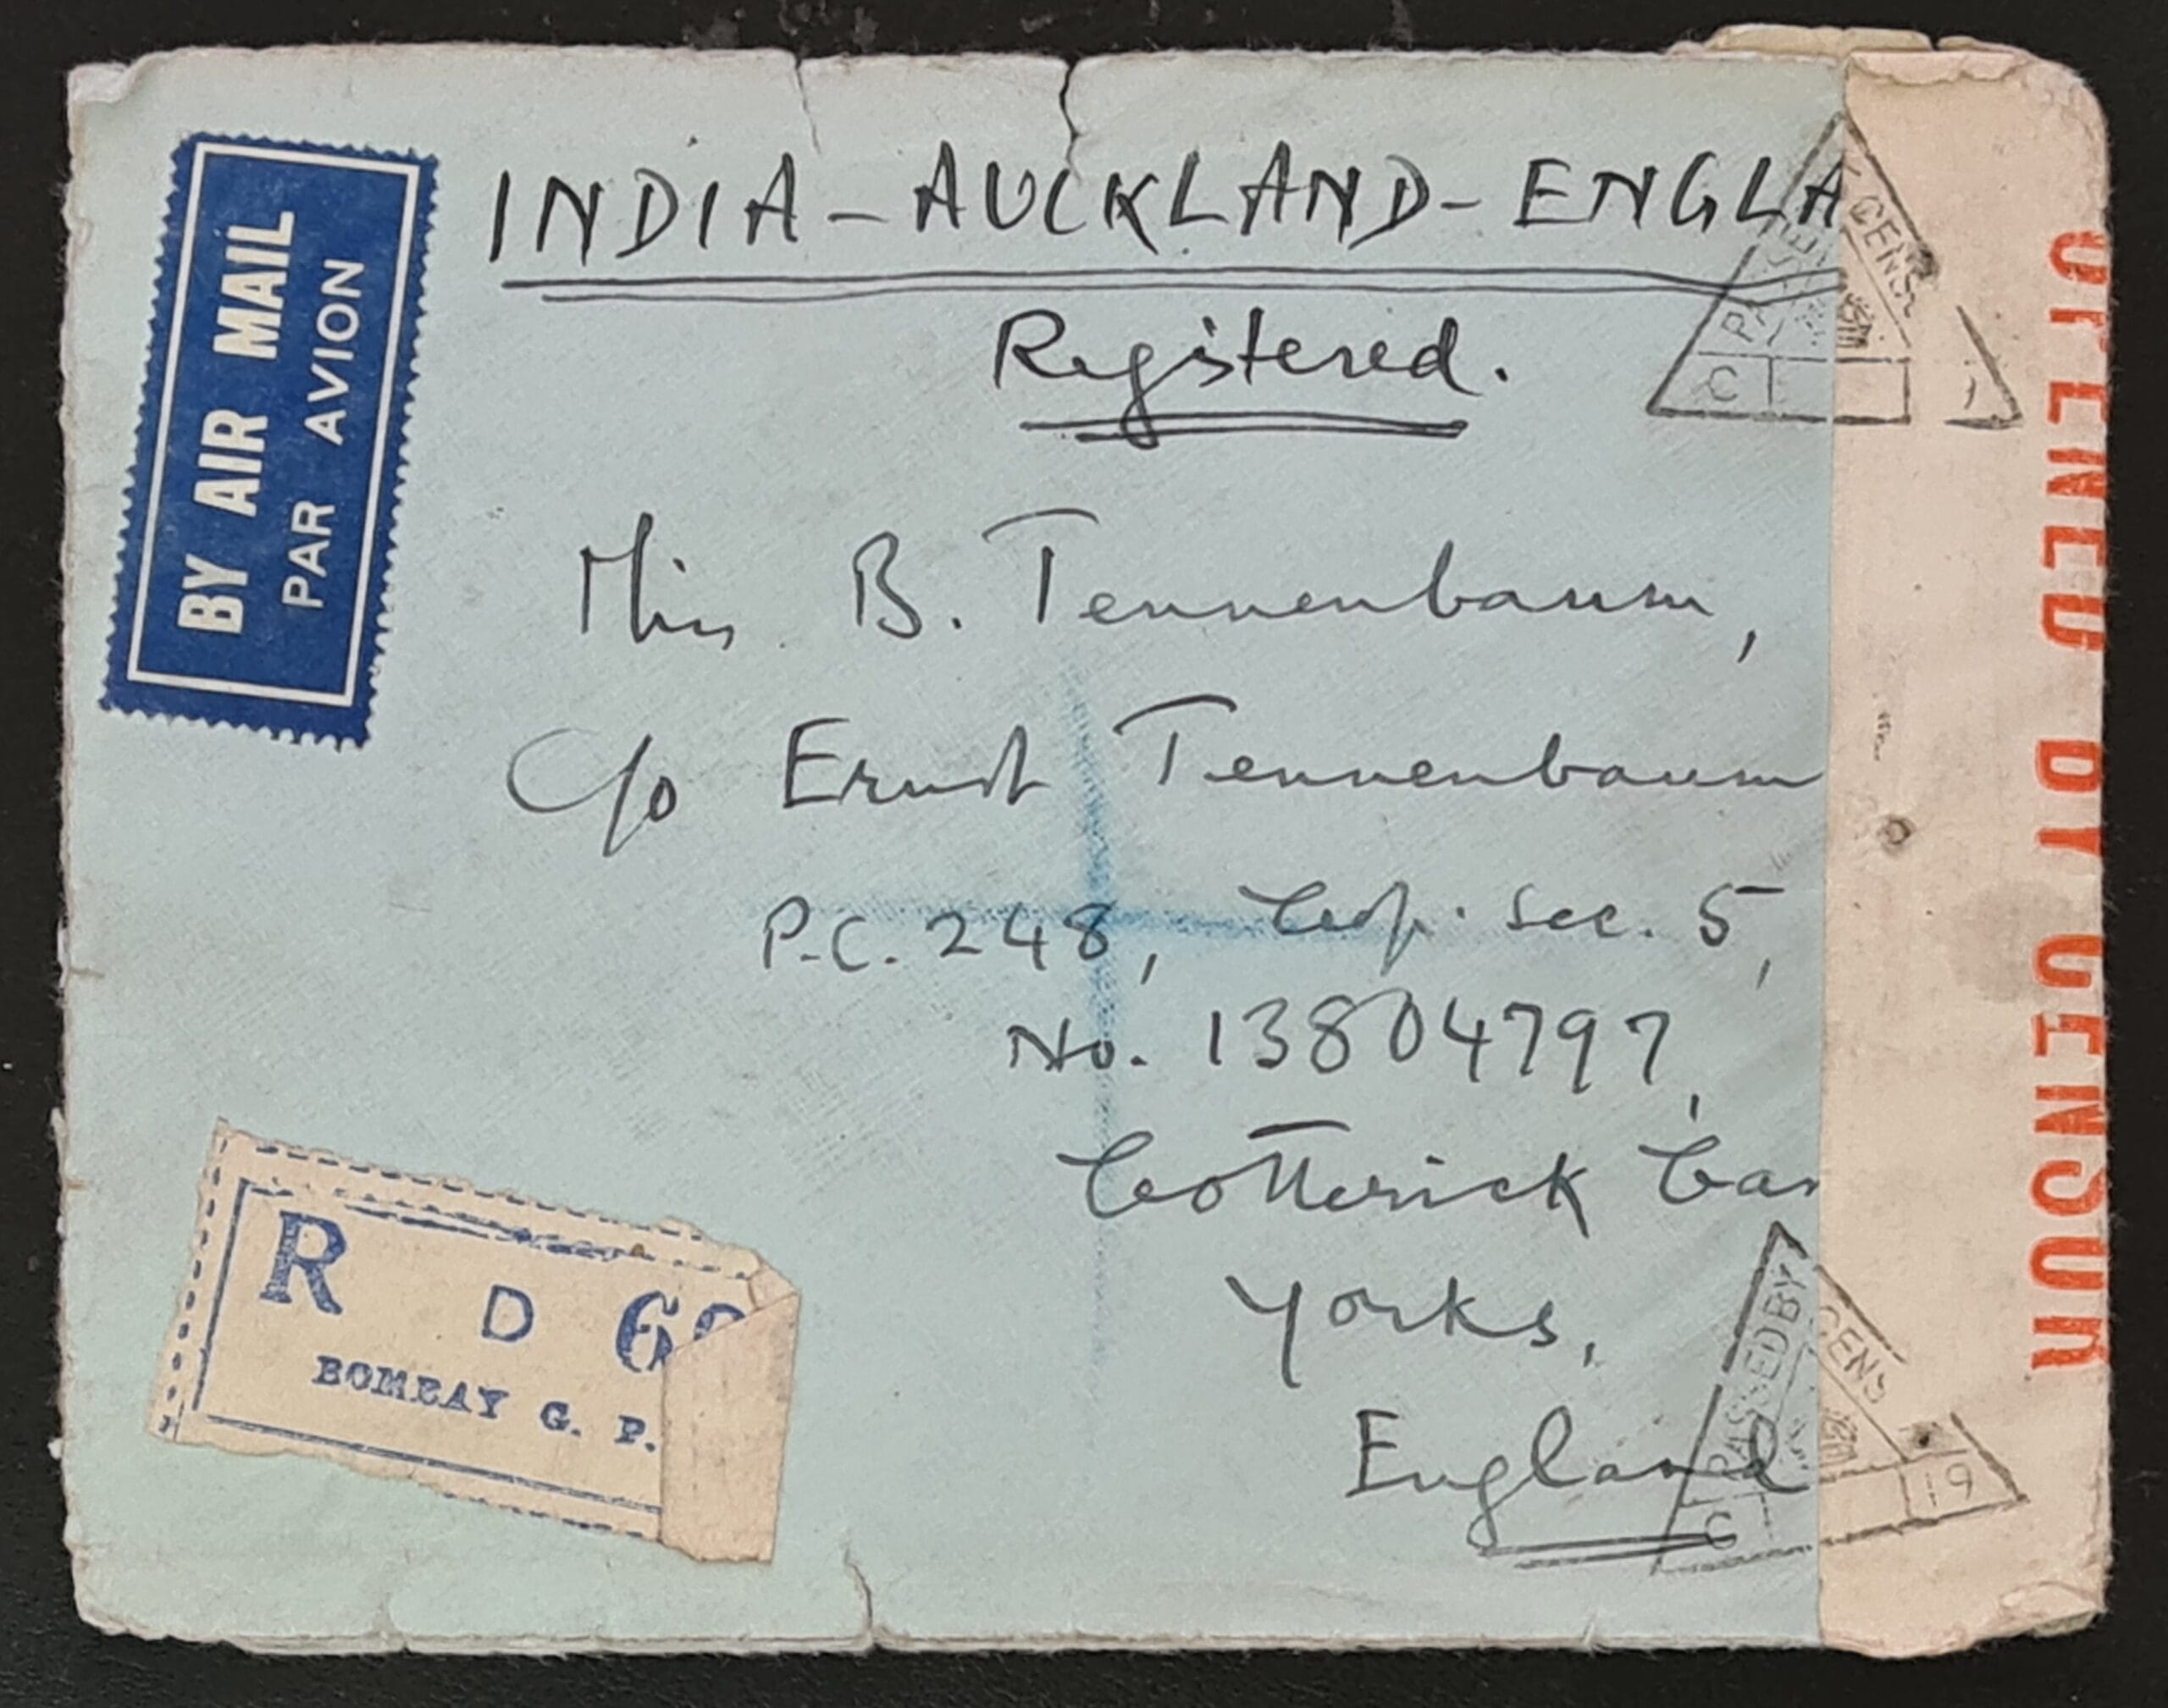 INDIA - AUCKLAND - ENGLA
Registered.
BY AIR MAIL
PAR AVION
Miss B. Tennenbaum,
c/o Ernst Tennenbaum
P.C. 248, Cof. Sec. 5,
No. 13804797,
Cotterick Ca
Yorks,
England
R D 6
BOMBAY G. P.
OPENED BY CENSOR
PASSED CENS
C
PASSED BY CENS
C 19